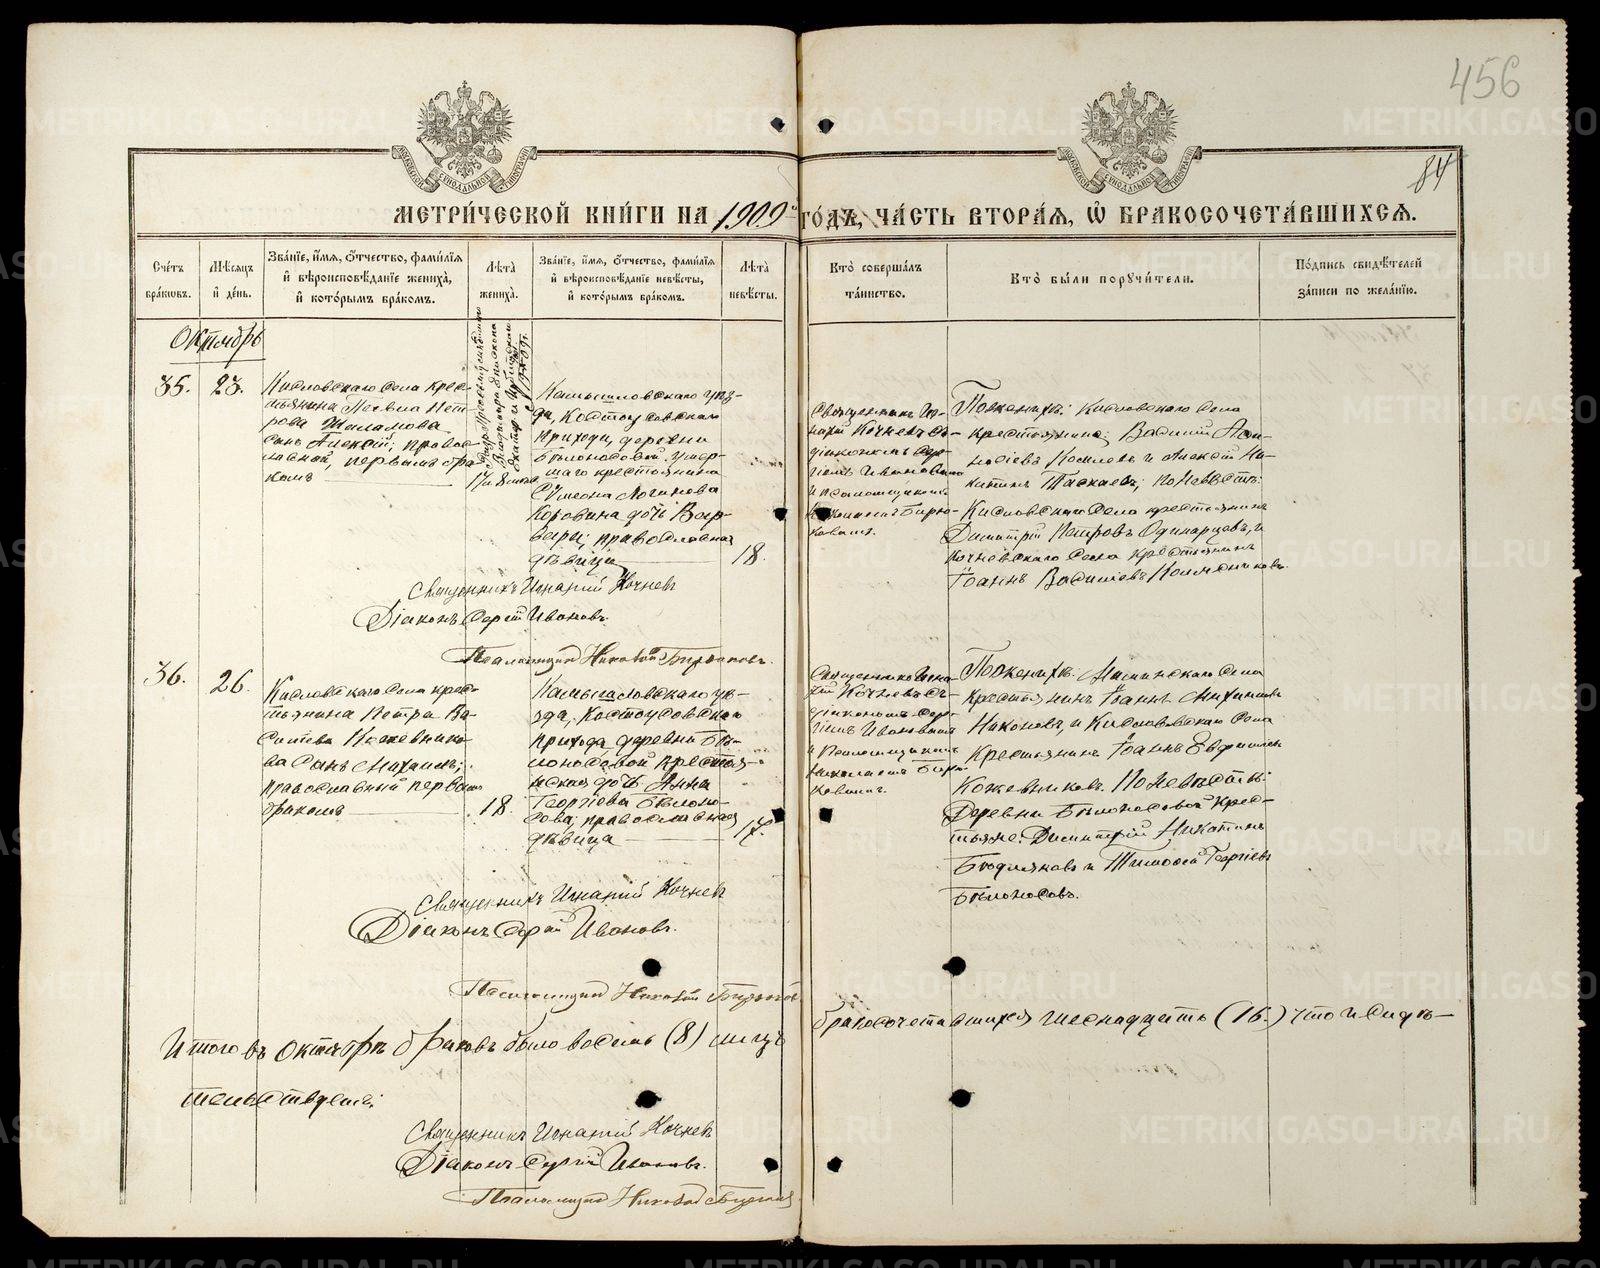 456
84
МЕТРИ́ЧЕСКОЙ КНИ́ГИ НА 1909й ГО́ДЪ, ЧА́СТЬ ВТОРА́Я, Ѽ БРАКОСОЧЕТА́ВШИХСЯ.
Сче́тъ бра́ковъ.
Мѣ́сяцъ и҆ де́нь.
Зва́нїе, и҆́мя, ѻ҆́тчество, фами́лїя
и҆ вѣроисповѣ́данїе жениха̀,
и҆ кото́рымъ бра́комъ.
Лѣ́та жениха̀.
Зва́нїе, и҆́мя, ѻ҆́тчество, фами́лїя
и҆ вѣроисповѣ́данїе невѣ́сты,
и҆ кото́рымъ бра́комъ.
Лѣ́та невѣ́сты.
Кто̀ соверша́лъ та́инство.
Кто̀ бы́ли порꙋчи́тели.
По́дпись свидѣ́телей
за́писи по жела́нїю.
Октябрь
35.
23.
Кисловскаго села крес-
тьянина
Петрова
сынъ Алексій; правос-
лавный, первымъ бра-
комъ
Камышловскаго уѣз-
да, Костоусовскаго
прихода, деревни
Бѣлоносовой умер-
шаго крестьянина
Сумеона Логинова
Коровина дочь Вар-
вара; православная
дѣвица
18.
Священникъ Иг-
натій Кочневъ съ
діакономъ Сер-
гіемъ Ивановымъ
и псаломщикомъ
Николаемъ Бирю-
ковымъ.
По женихѣ: Кисловскаго села
крестьяне: Василій
и Алексій Ни-
китинъ Таскаевъ; по невѣстѣ:
Кисловскаго села крестьянинъ
Димитрій Петровъ Одинарцевъ, и
Кочневскаго села крестьянинъ
Іоаннъ Василіевъ
Священникъ Игнатій Кочневъ
Діаконъ Сергій Ивановъ.
Псаломщикъ Николай Бирюковъ.
36.
26.
Кисловскаго села крес-
тьянина Петра Ва-
силіева Кожевнико-
ва сынъ Михаилъ;
православный первымъ
бракомъ
18.
Камышловскаго уѣ-
зда, Костоусовскаго
прихода деревни Бѣ-
лоносовой крестья-
нская дочь Анна
Георгіева Бѣлоно-
сова; православная
дѣвица
17.
Священникъ Игна-
тій Кочневъ съ
діакономъ Сер-
гіемъ Ивановымъ
и Псаломщикомъ
Николаемъ Бирю-
ковымъ.
По женихѣ: села
крестьянинъ Іоаннъ
Никоновъ, и Кисловскаго села
Крестьянинъ Іоаннъ Евфиміевъ
Кожевниковъ. По невѣстѣ:
Деревни Бѣлоносовой крес-
тьяне: Димитрій Никитинъ
и Тимофей Георгіевъ
Бѣлоносовъ.
Священникъ Игнатій Кочневъ
Діаконъ Сергій Ивановъ.
Псаломщикъ Николай Бирюков
Итого въ Октябрѣ браковъ было восемь (8) лицъ бракосочетавшихся шестнадцать (16.) что и свидѣ-
тельствуемъ:
Священникъ Игнатій Кочневъ
Діаконъ Сергій Ивановъ.
Псаломщикъ Николай Бирюков
METRIKI.GASO-URAL.RU